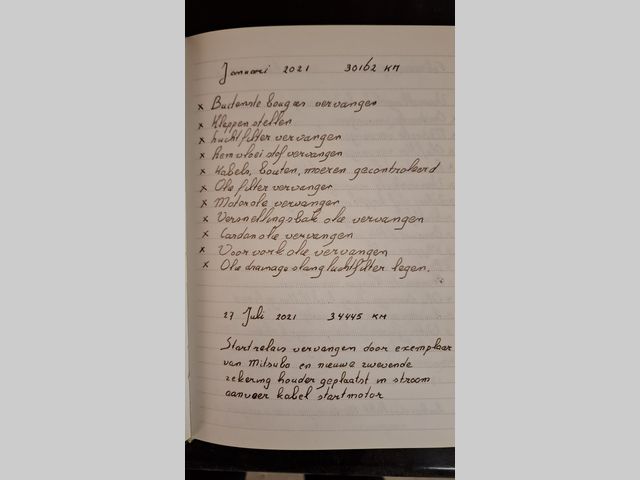 Januari 2021 30162 KM
x Buitenste bougies vervangen
x Kleppen stellen
x Luchtfilter vervangen
x Remvloeistof vervangen
x Kabels, bouten, moeren gecontroleerd
x Olie filter vervangen
x Motorolie vervangen
x Versnellingsbak olie vervangen
x Cardanolie vervangen
x Voorvork olie vervangen
x Olie drainage slang luchtfilter legen.
27 Juli 2021 34445 KM
Startrelais vervangen door exemplaar
van Mitsuba en nieuwe zwevende
zekering houder geplaatst in stroom
aanvoer kabel startmotor